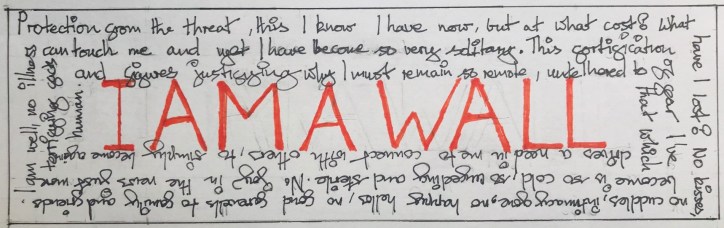 Protection from the threat, this I know I have now, but at what cost? what
have I lost? No kisses,
no cuddles, intimacy gone, no happy hellos, no fond farewells to family and friends.
I am well, no illness
can touch me and yet I have become so very solitary. This fortification
of fear I've
become is so cold, so unyielding and sterile. No joy in the news just more
terrifying facts
and figures justifying why I must remain so remote, untethered to
that which
drives a need in me to connect with others, to simply become again
human.
I AM A WALL